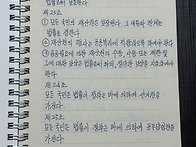 법률로써 보호한다.
제 23조.
① 모든 국민의 재산권은 보장된다. 그 내용과 한계는
법률로 정한다.
② 재산권의 행사는 공공복리에 적합하도록 하여야 한다.
③ 공공필요에 의한 재산권의 수용, 사용 또는 제한 및
그에 대한 보상은 법률로써 하되, 정당한 보상을 지급하여야
한다.
제 24조.
모든 국민은 법률이 정하는 바에 의하여 선거권을
가진다.
제 25조.
모든 국민은 법률이 정하는 바에 의하여 공무담임권을
가진다.